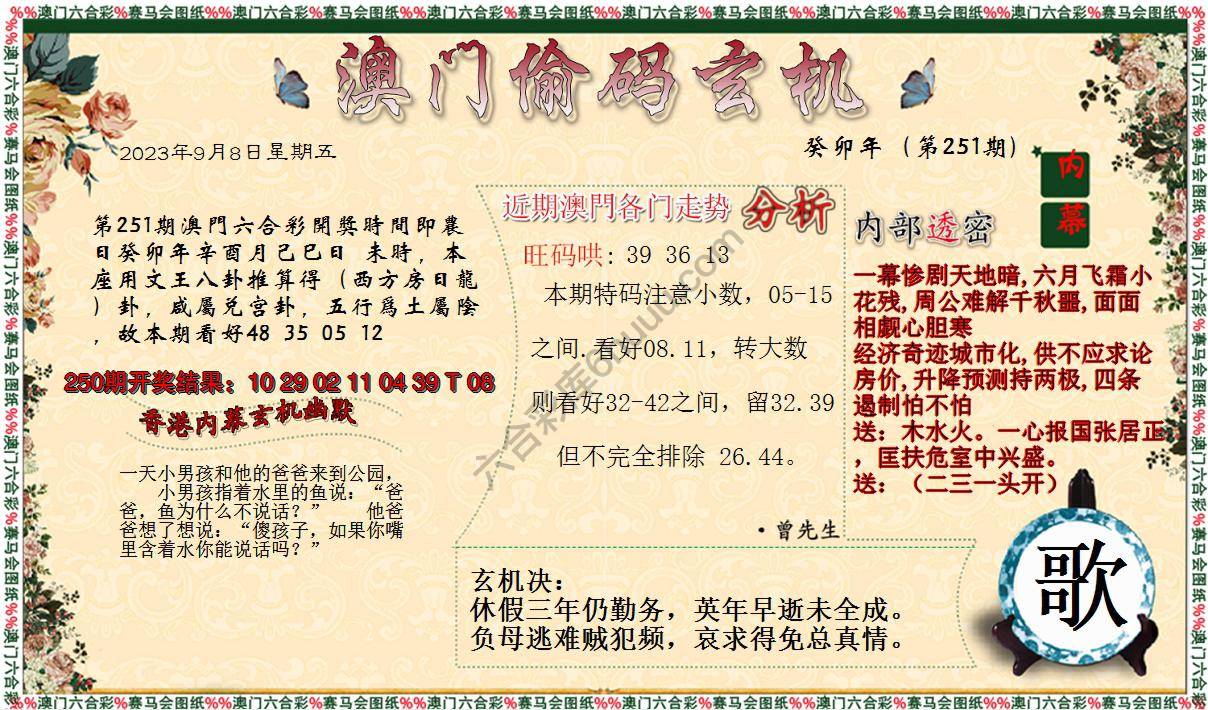 %%澳门六合彩%赛马会图纸%%澳门六合彩%赛马会图纸%%澳门六合彩%赛马会图纸%%澳门六合彩%赛马会图纸
澳门偷码玄机
2023年9月8日星期五
癸卯年（第251期）
第251期澳門六合彩開獎時間即農
日癸卯年辛酉月己巳日 未時，本
座用文王八卦推算得（西方房日龍
）卦，咸屬兑宫卦，五行爲土屬陰
，故本期看好48 35 05 12
250期开奖结果：10 29 02 11 04 39 T 08
香港内幕玄机幽默
一天小男孩和他的爸爸来到公园，
小男孩指着水里的鱼说：“爸
爸，鱼为什么不说话？” 他爸
爸想了想说：“傻孩子，如果你嘴
里含着水你能说话吗？”
近期澳門各门走势 分析
旺码哄: 39 36 13
本期特码注意小数，05-15
之间.看好08.11，转大数
则看好32-42之间，留32.39
但不完全排除 26.44。
·曾先生
内部透密
内
幕
一幕惨剧天地暗,六月飞霜小
花残,周公难解千秋噩,面面
相觑心胆寒
经济奇迹城市化,供不应求论
房价,升降预测持两极,四条
遏制怕不怕
送：木水火。一心报国张居正
，匡扶危室中兴盛。
送：（二三一头开）
玄机决：
休假三年仍勤务，英年早逝未全成。
负母逃难贼犯频，哀求得免总真情。
歌